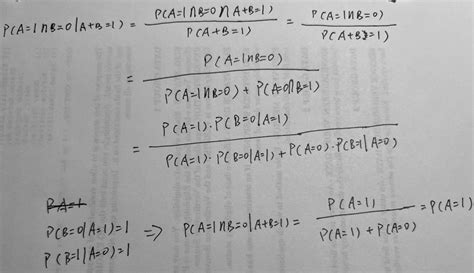 P(A=1∩B=0|A+B=1) = P(A=1∩B=0∩A+B=1) / P(A+B=1) = P(A=1∩B=0) / P(A+B=1)
= P(A=1∩B=0) / P(A=1∩B=0) + P(A=0∩B=1)
= P(A=1)·P(B=0|A=1) / P(A=1)·P(B=0|A=1) + P(A=0)·P(B=1|A=0)
P(B=0|A=1)=1
P(B=1|A=0)=1
⇒ P(A=1∩B=0|A+B=1) = P(A=1) / P(A=1) + P(A=0) = P(A=1)